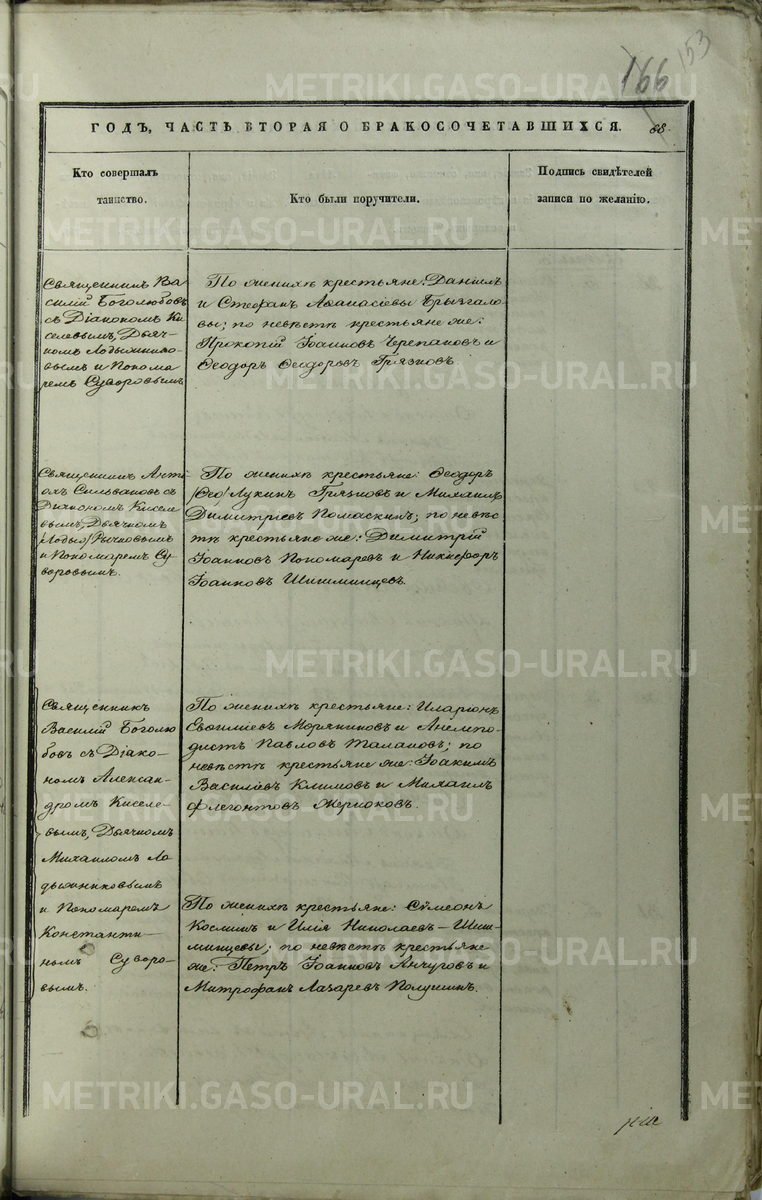 153
166
ГОДЪ, ЧАСТЬ ВТОРАЯ О БРАКОСОЧЕТАВШИХСЯ.
68.
Кто совершалъ
таинство.
Кто были поручители.
Подпись свидѣтелей
записи по желанію.
Священникъ Ва
силій Боголюбовъ
съ Діакономъ Ки
селевымъ, Дьяч-
комъ Лодыжнико-
вымъ и Понома
ремъ Суворовымъ
По женихѣ крестьяне: Даніилъ
и Стефанъ Аѳанасіевы Брызгало
вы; по невѣстѣ крестьяне же:
Прокопій Іоанновъ Черепановъ и
Ѳеодоръ Ѳеодоровъ Грязновъ.
Священникъ Анті
охъ Сильвановъ съ
Діакономъ Кисел
евымъ, Дьячкомъ
Рычковымъ
и Пономаремъ Су-
воровымъ.
По женихѣ крестьяне: Ѳеодоръ
/Ѳео/ Лукинъ Грязновъ и Михаилъ
Димитріевъ Помаскинъ; по невѣс
тѣ крестьяне же: Димитрій
Іоанновъ Пономаревъ и Никифоръ
Іоанновъ Шишминцевъ.
Священникъ
Василій Боголю
бовъ съ Діако-
номъ Алексан-
дромъ Киселе-
вымъ, Дьячкомъ
Михаиломъ Ло
дыжниковымъ
и Пономаремъ
Константи-
номъ Суворо-
вымъ.
По женихѣ крестьяне: Иларіонъ
Евѳиміевъ Моряниновъ и Анемпо
дистъ Павловъ Талановъ; по
невѣстѣ крестьяне же: Іоакимъ
Василіевъ Климовъ и Михаилъ
Флегонтовъ Жерноковъ.
По женихѣ крестьяне: Сѵмеонъ
Косминъ и Илія Николаевъ — Шиш
минцевы; по невѣстѣ крестьяне
же: Петръ Іоанновъ Анчуговъ и
Митрофанъ Лазаревъ Полушинъ.
METRIKI.GASO-URAL.RU